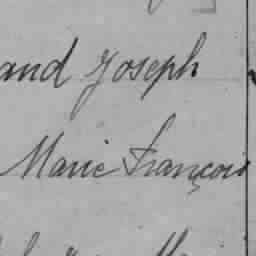 and Joseph
Marie François